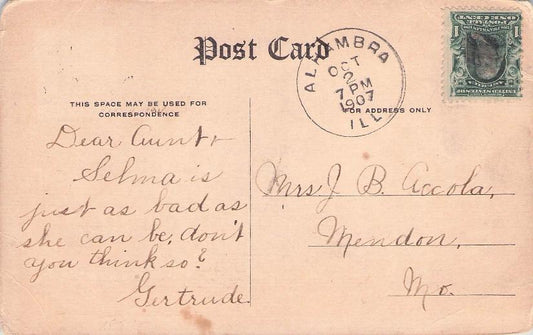 Post Card
ALHAMBRA
OCT
2
7 PM
1907
ILL
THIS SPACE MAY BE USED FOR
CORRESPONDENCE
FOR ADDRESS ONLY
Dear Aunt
Selma is
just as bad as
she can be, don't
you think so?
Gertrude.
Mrs J. B. Accola,
Mendon,
Mo.